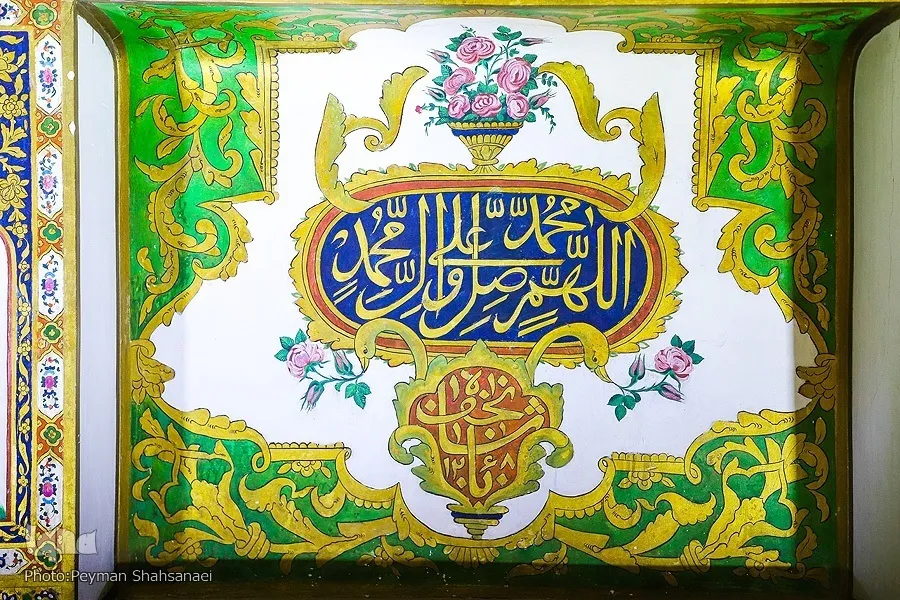 اللّٰهُمَّ صَلِّ عَلَی مُحَمَّدٍ وَآلِ مُحَمَّدٍ
۱۲۶۸
Photo:Peyman Shahsanaei